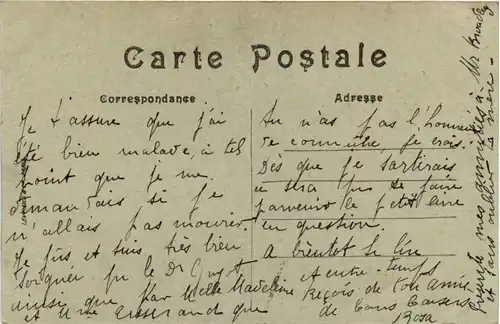 Carte Postale
Correspondance
Je t'assure que j'ai
été bien malade, à tel
point que je me
demandais si je
n'allais pas mourir.
Je fus et suis très bien
soignée par le Dr
ainsi que par Melle Madeleine
et une
Adresse
tu n'as pas l'honneur
de connaître, je crois.
Dès que je sortirais
ce sera pour te faire
parvenir le petit livre
en question.
A bientôt te lire
et entre-temps
Reçois de ton amie
de bons baisers
Rosa
Présente mes amitiés à Mr
et sans oublier ta mère -